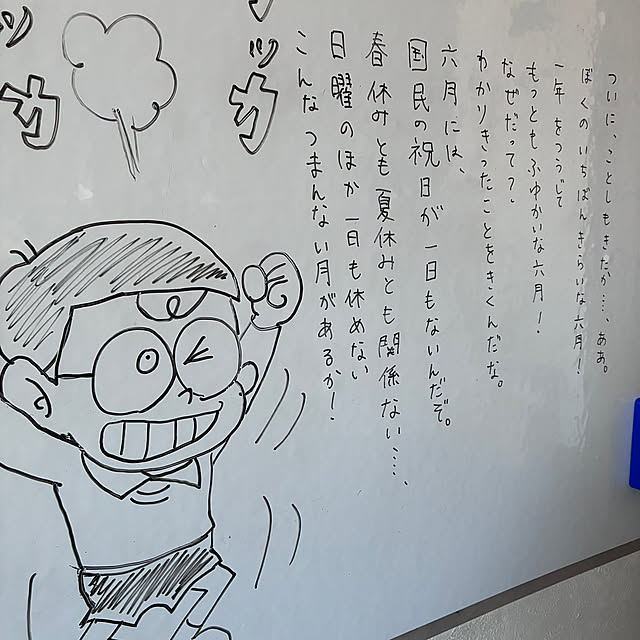 ついに、ことしもきたか…、ああ。
ぼくのいちばんきらいな六月!
一年をつうじて
もっともふゆかいな六月!
なぜだって?、
わかりきったことをきくんだな。
六月には、
国民の祝日が一日もないんだぞ。
春休みとも夏休みとも関係ない…、
日曜のほか一日も休めない
こんなつまんない月があるか!
ッカ
ッカ